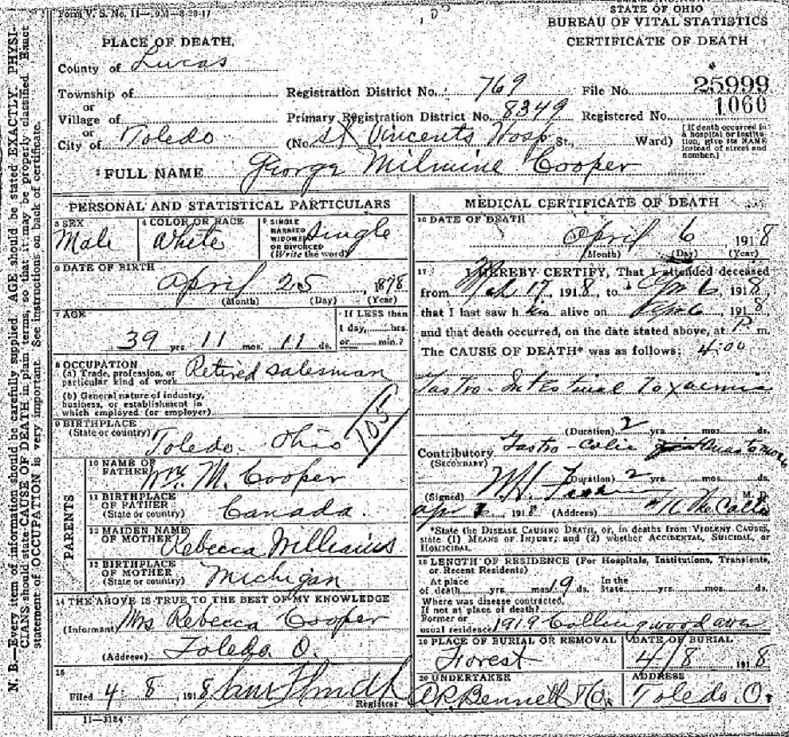 Form V. S. No. 11
STATE OF OHIO
BUREAU OF VITAL STATISTICS
CERTIFICATE OF DEATH
PLACE OF DEATH.
County of Lucas
Township of
or
Village of
or
City of Toledo
Registration District No. 769 File No. 25999
Primary Registration District No. 8349 Registered No. 1060
(No. St Vincents Hosp St., Ward)
(If death occurred in a hospital or institution, give its NAME instead of street and number.)
FULL NAME George Milmine Cooper
PERSONAL AND STATISTICAL PARTICULARS
3 SEX Male
4 COLOR OR RACE White
5 SINGLE MARRIED WIDOWED OR DIVORCED (Write the word) Single
6 DATE OF BIRTH
April 25, 1878
(Month) (Day) (Year)
7 AGE
39 yrs. 11 mos. 11 ds.
If LESS than 1 day, hrs. or min.?
8 OCCUPATION
(a) Trade, profession, or particular kind of work Retired Salesman
(b) General nature of industry, business, or establishment in which employed (or employer)
105
9 BIRTHPLACE (State or country) Toledo Ohio
PARENTS
10 NAME OF FATHER Wm. M. Cooper
11 BIRTHPLACE OF FATHER (State or country) Canada.
12 MAIDEN NAME OF MOTHER Rebecca Williams
13 BIRTHPLACE OF MOTHER (State or country) Michigan
14 THE ABOVE IS TRUE TO THE BEST OF MY KNOWLEDGE
(Informant) Mrs Rebecca Cooper
(Address) Toledo O.
15
Filed 4 8, 1918
Registrar
11-3184
MEDICAL CERTIFICATE OF DEATH
16 DATE OF DEATH
April 6 1918
(Month) (Day) (Year)
17 I HEREBY CERTIFY, That I attended deceased
from Mch 17, 1918, to Apr 6, 1918
that I last saw h im alive on Apr 6, 1918
and that death occurred, on the date stated above, at P. m.
The CAUSE OF DEATH* was as follows: 4:00
Gastro-Intestinal Toxaemia
(Duration) 2 yrs. mos. ds.
Contributory (SECONDARY) Gastro-Colic
(Duration) 2 yrs. mos. ds.
(Signed) M. D.
Apr 1918 (Address)
*State the DISEASE CAUSING DEATH, or, in deaths from VIOLENT CAUSES, state (1) MEANS OF INJURY; and (2) whether ACCIDENTAL, SUICIDAL, or HOMICIDAL.
18 LENGTH OF RESIDENCE (For Hospitals, Institutions, Transients, or Recent Residents)
At place of death yrs. mos. 19 ds. In the State yrs. mos. ds.
Where was disease contracted, If not at place of death?
Former or usual residence 1919 Collingwood ave
19 PLACE OF BURIAL OR REMOVAL Forest
DATE OF BURIAL 4/8 1918
20 UNDERTAKER A.R. Bennett
ADDRESS Toledo. O.
N. B.—Every item of information should be carefully supplied. AGE should be stated EXACTLY. PHYSI-
CIANS should state CAUSE OF DEATH in plain terms, so that it may be properly classified. Exact
statement of OCCUPATION is very important. See instructions on back of certificate.